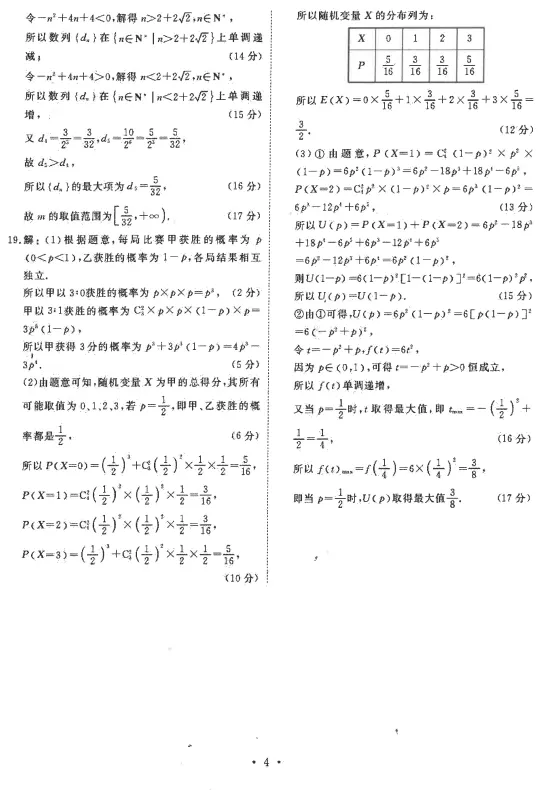 令-n²+4n+4<0,解得 n>2+2√2,n∈N*,
所以数列{dₙ}在{n∈N*|n>2+2√2}上单调递
减; (14分)
令-n²+4n+4>0,解得 n<2+2√2,n∈N*,
所以数列{dₙ}在{n∈N*|n<2+2√2}上单调递
增, (15分)
又 d₄=3/2⁵=3/32,d₅=10/2⁶=5/2⁵=5/32,
故 d₅>d₄,
所以{dₙ}的最大项为 d₅=5/32, (16分)
故 m 的取值范围为[5/32,+∞). (17分)
19.解:(1)根据题意,每局比赛甲获胜的概率为 p
(0<p<1),乙获胜的概率为 1-p,各局结果相互
独立.
所以甲以 3:0获胜的概率为 p×p×p=p³, (2分)
甲以 3:1获胜的概率为 C₃²×p×p×(1-p)×p=
3p³(1-p),
所以甲获得 3 分的概率为 p³+3p³(1-p)=4p³-
3p⁴. (5分)
(2)由题意可知,随机变量 X 为甲的总得分,其所有
可能取值为 0,1,2,3,若 p=1/2,即甲、乙获胜的概
率都是1/2, (6分)
所以 P(X=0)=(1/2)³+C₃²(1/2)²×1/2×1/2=5/16,
P(X=1)=C₄²(1/2)²×(1/2)²×1/2=3/16,
P(X=2)=C₄²(1/2)²×(1/2)²×1/2=3/16,
P(X=3)=(1/2)³+C₃²(1/2)²×1/2×1/2=5/16,
(10分)
所以随机变量 X 的分布列为:
X 0 1 2 3
P 5/16 3/16 3/16 5/16
所以 E(X)=0×5/16+1×3/16+2×3/16+3×5/16=
3/2. (12分)
(3)①由题意,P(X=1)=C₄²(1-p)²×p²×
(1-p)=6p²(1-p)³=6p²-18p³+18p⁴-6p⁵,
P(X=2)=C₄²p²×(1-p)²×p=6p³(1-p)²=
6p³-12p⁴+6p⁵, (13分)
所以 U(p)=P(X=1)+P(X=2)=6p²-18p³
+18p⁴-6p⁵+6p³-12p⁴+6p⁵
=6p²-12p³+6p⁴=6p²(1-p)²,
则U(1-p)=6(1-p)²[1-(1-p)]²=6(1-p)²p²,
所以 U(p)=U(1-p). (15分)
②由①可得,U(p)=6p²(1-p)²=6[p(1-p)]²
=6(-p²+p)²,
令 t=-p²+p,f(t)=6t²,
因为 p∈(0,1),可得 t=-p²+p>0 恒成立,
所以 f(t)单调递增,
又当 p=1/2时,t 取得最大值,即 tₘₐₓ=-(1/2)²+
1/2=1/4, (16分)
所以 f(t)ₘₐₓ=f(1/4)=6×(1/4)²=3/8,
即当 p=1/2时,U(p)取得最大值3/8. (17分)
• 4 •